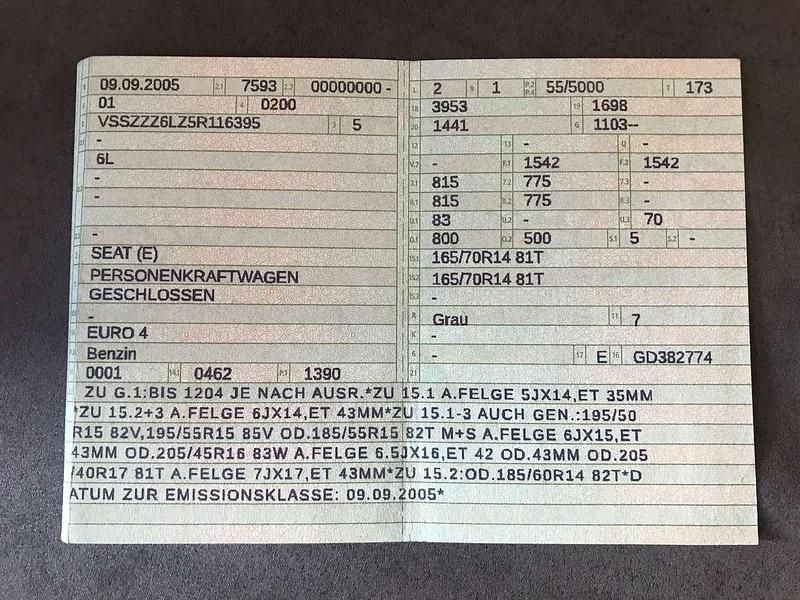 09.09.2005 2.1 7593 2.2 00000000 -
01 4 0200
VSSZZZ6LZ5R116395 3 5
-
6L
-
-
-
SEAT (E)
PERSONENKRAFTWAGEN
GESCHLOSSEN
-
EURO 4
Benzin
0001 14.1 0462 P.1 1390
L 2 9 1 P.2 P.4 55/5000 T 173
18 3953 19 1698
20 1441 G 1103--
12 - 13 - Q -
V.7 - F.1 1542 F.2 1542
7.1 815 7.2 775 7.3 -
8.1 815 8.2 775 8.3 -
U.1 83 U.2 - U.3 70
O.1 800 O.2 500 S.1 5 S.2 -
15.1 165/70R14 81T
15.2 165/70R14 81T
15.3 -
R Grau 11 7
K -
6 - 17 E 16 GD382774
21
ZU G.1:BIS 1204 JE NACH AUSR.*ZU 15.1 A.FELGE 5JX14,ET 35MM
*ZU 15.2+3 A.FELGE 6JX14,ET 43MM*ZU 15.1-3 AUCH GEN.:195/50
R15 82V,195/55R15 85V OD.185/55R15 82T M+S A.FELGE 6JX15,ET
43MM OD.205/45R16 83W A.FELGE 6.5JX16,ET 42 OD.43MM OD.205
/40R17 81T A.FELGE 7JX17,ET 43MM*ZU 15.2:OD.185/60R14 82T*D
ATUM ZUR EMISSIONSKLASSE: 09.09.2005*